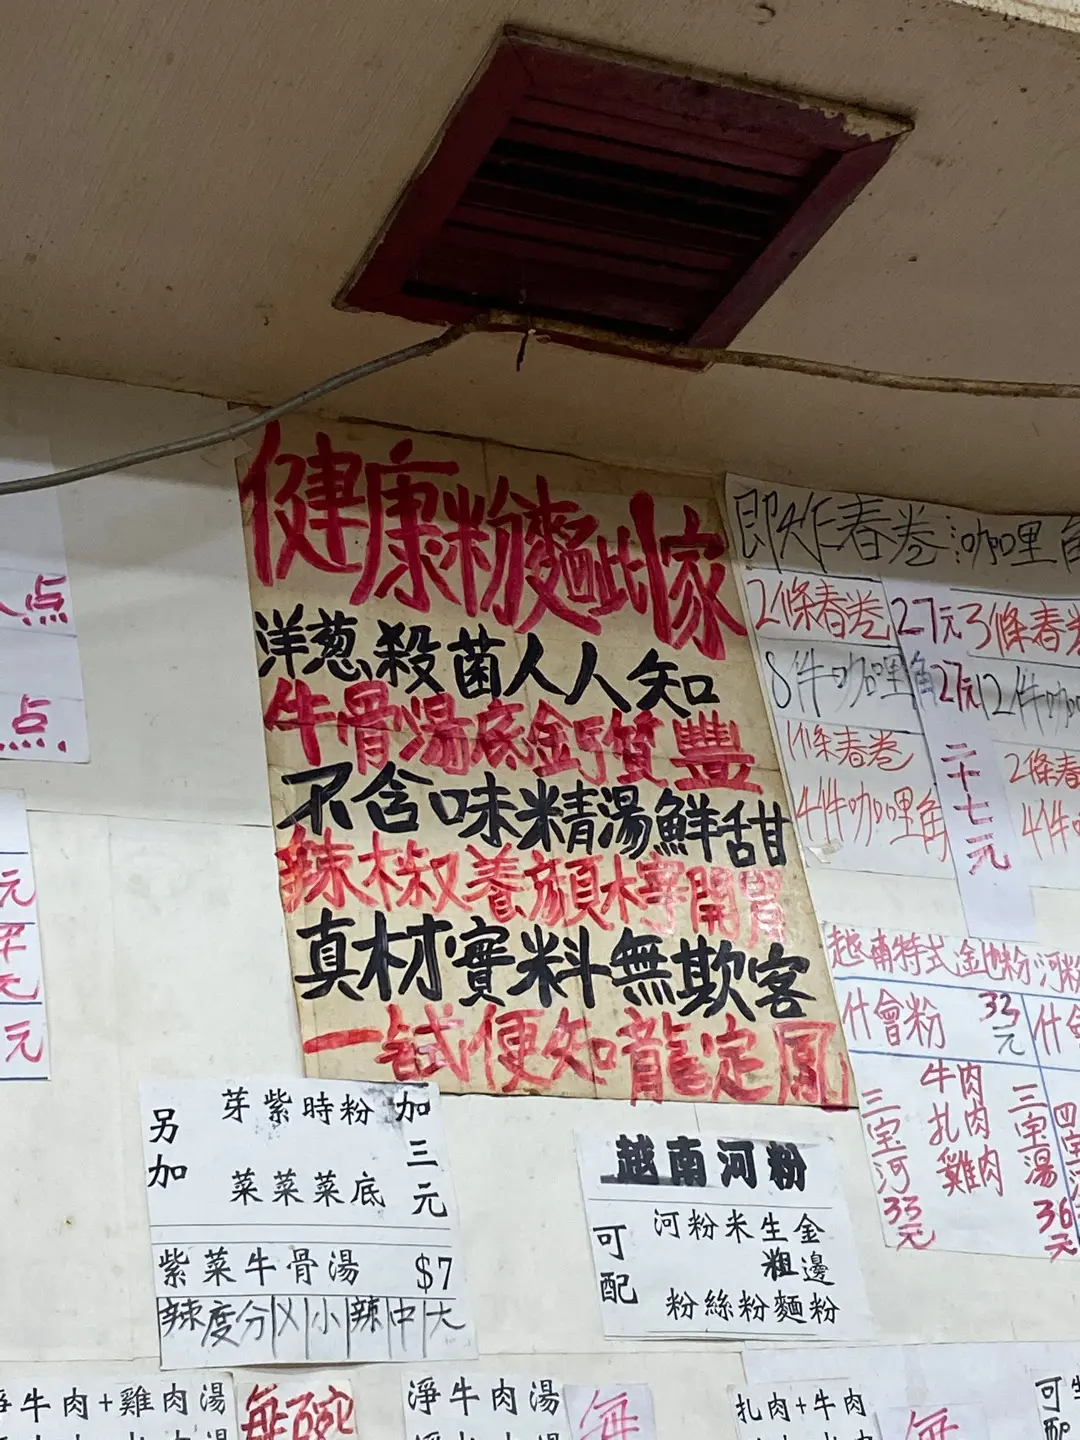 健康粉麵此家
洋葱殺菌人人知
牛骨湯底鈣質豐
不含味精湯鮮甜
辣椒養顔檸開胃
真材實料無欺客
一試便知龍定鳳
即炸春卷:咖哩角
2條春卷 27元 3條春卷
8件咖哩角 27元 12件咖
1條春卷
4件咖哩角
二十七元
2條春
4件
越南特式金邊粉河粉
什會粉 33元 什會
三宝河 33元
牛肉
扎肉
雞肉
三宝湯 36元
点
点
元
元
元
另加
芽紫時粉
菜菜菜底
加三元
紫菜牛骨湯 $7
辣度分|X|小|辣|中|大
越南河粉
可配
河粉米生金
粗邊
粉絲粉麵粉
牛肉+雞肉湯
每碗
淨牛肉湯
每
扎肉+牛肉
每
可配